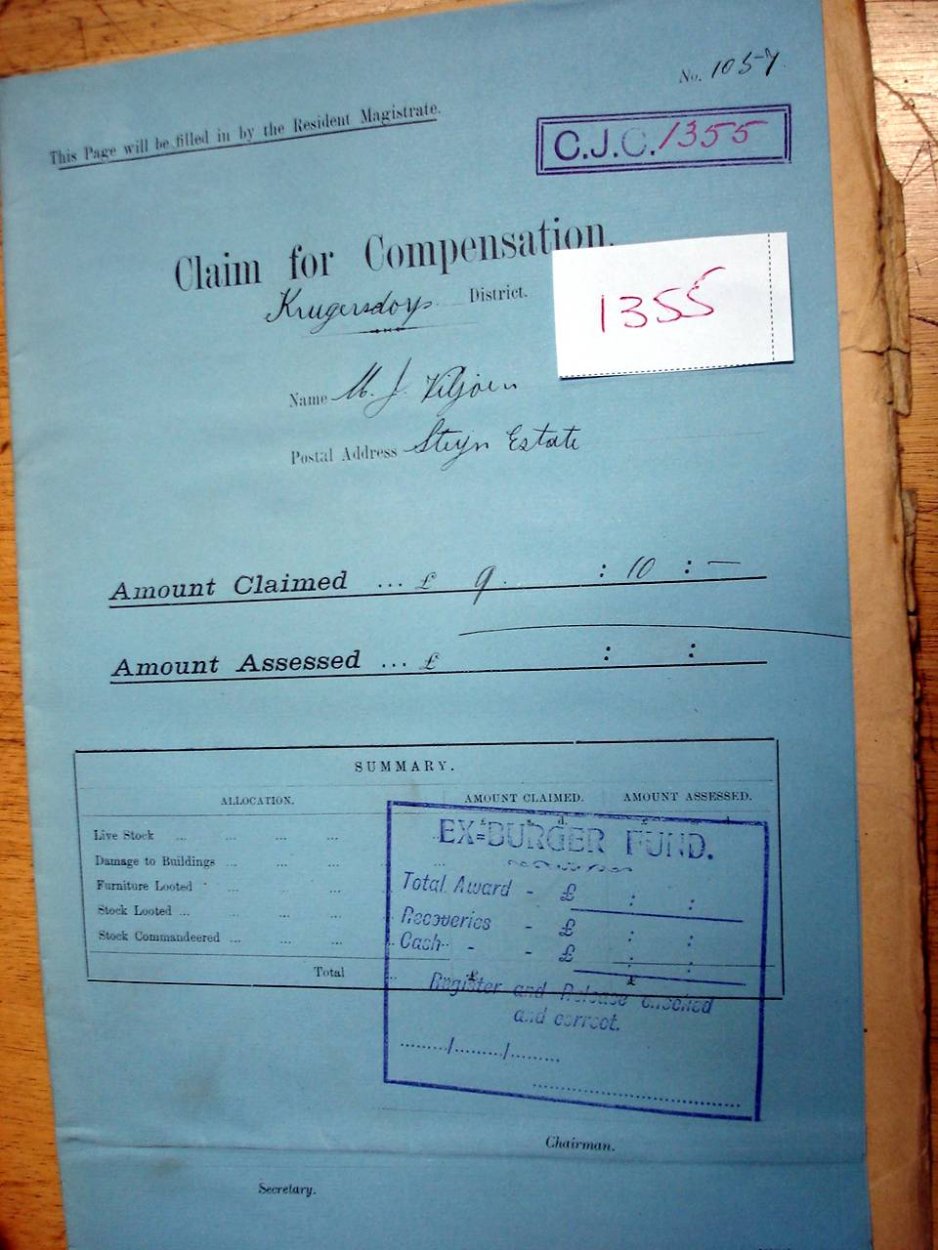 No. 1057
This Page will be filled in by the Resident Magistrate.
C.J.C. 1355
Claim for Compensation.
Krugersdorp District.
1355
Name M. J. Viljoen
Postal Address Steyn Estate
Amount Claimed ... £ 9. : 10 : —
Amount Assessed ... £ : :
SUMMARY.
ALLOCATION. AMOUNT CLAIMED. AMOUNT ASSESSED.
EX-BURGER FUND.
Live Stock ... ... ... ...
Damage to Buildings ... ... ...
Furniture Looted ... ... ...
Stock Looted ... ... ...
Stock Commandeered ... ... ...
Total
Total Award - £ : :
Recoveries - £ : :
Cash - - £ : :
Register and Release checked
and correct.
........./........./.........
Chairman.
Secretary.